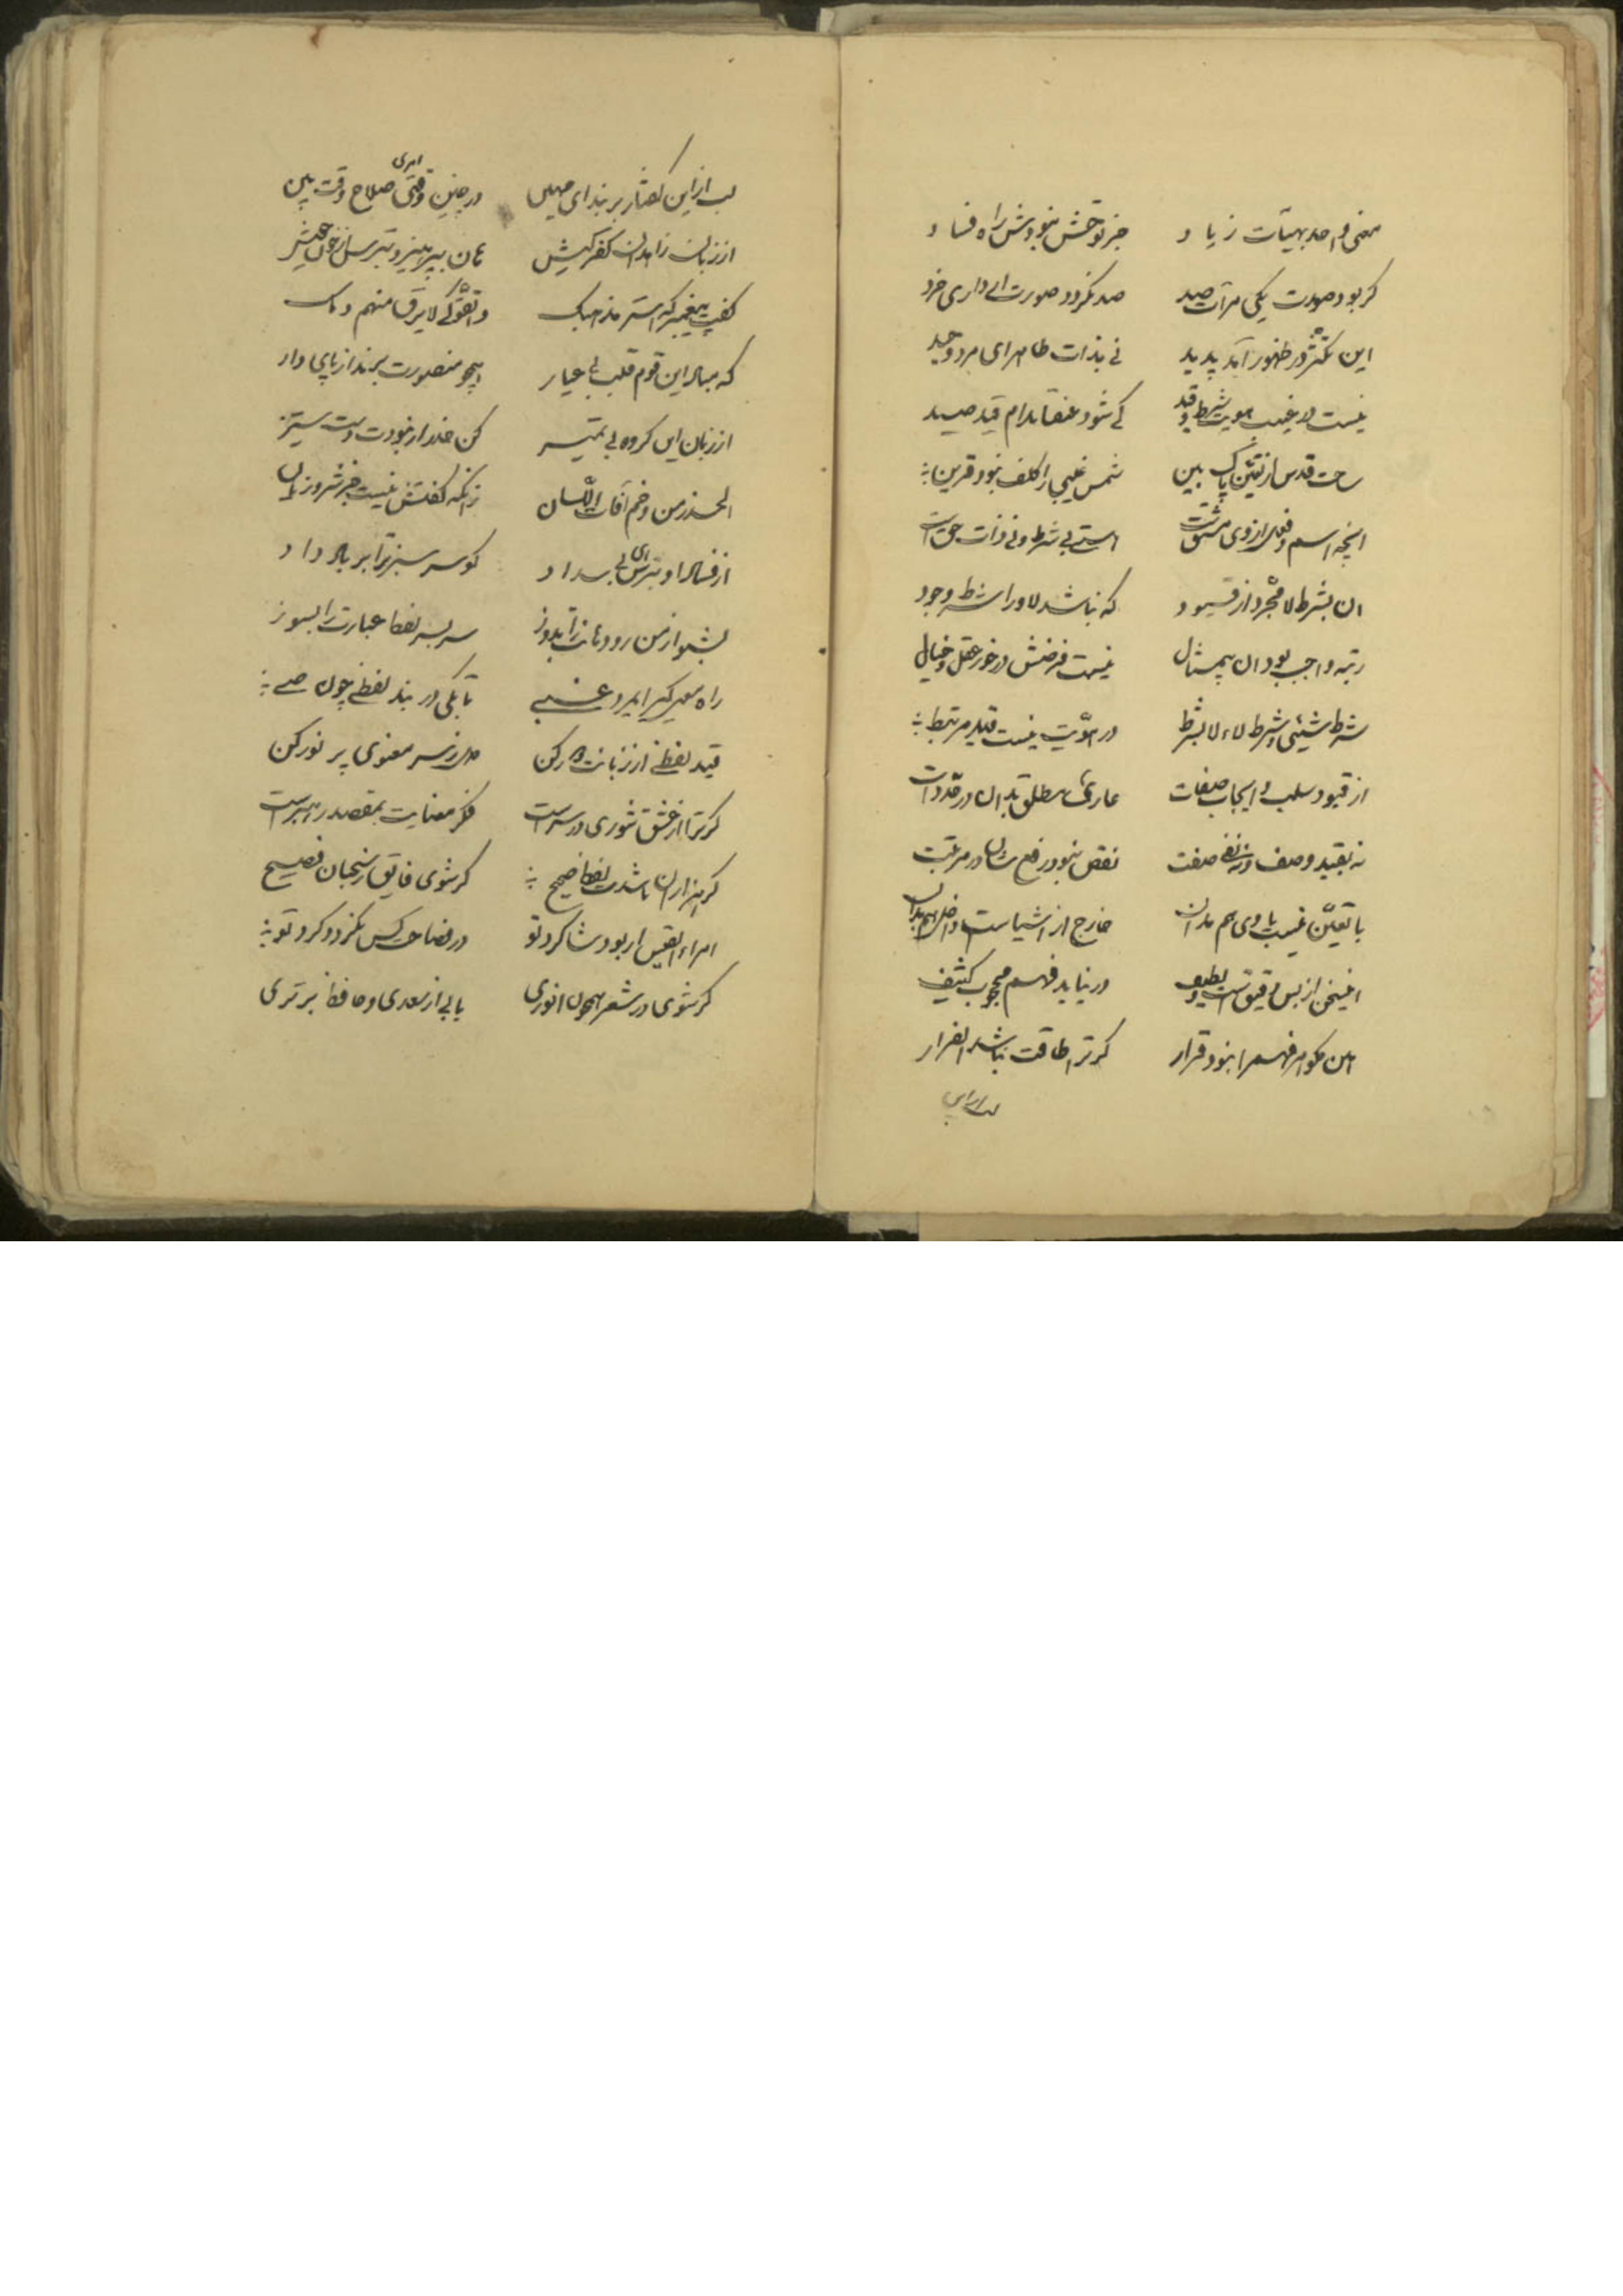 معنی واحد بهیئات زیاد جز توحش نبودش راه فساد
کر بود صورت یکی مرآت صد صد نکردد صورت ار داری خرد
این تکثر در ظهور آمد پدید نی بذات طاهر ای مرد وحید
نیست در غیب هویت شرط و قید کی شود عنقا بدام قید صید
ساحت قدس از تعین پاک بین شمس غیبی را کلف نبود قرین
انچه اسم و فعل از وی مشتق است استی بی شرط و نی ذات حق است
ان بشرط لا مجرد از قیود که نباشد لا ورا شرط وجود
رتبه واجب بود ان بیمثال نیست فرضش درخور عقل و خیال
شرط شیئی و شرط لاء لا بشرط در هویت نیست قید مرتبط
از قیود سلب و ایجاب صفات عاریش مطلق بدان در قدر ذات
نه بقید وصف و نه نفی صفت نقص نبود رفع شان در مرتبت
با تعین نیست با وی هم بدان خارج از اشیاست داخل هم بدان
اینسخن از بس دقیق است و لطیف در نیاید فهم محجوب کثیف
هین مکو مر فهم را نبود قرار کر ترا طاقت نباشد الفرار
لب از این
لب از این کفتار بر بند ای مهین در چنین وقتی امری صلاح وقت بین
از زبان زاهدان کفر کیش هان بپرهیز و بترس از خول خویش
کفت پیغمبر که استر مذهبک واتقوا کی لا یرق منهم دمک
که مبادا این قوم قلب بی عیار همچو منصورت برند از پای دار
از زبان این کروه بی تمیز کن حذر ار نبودت دست ستیز
الحذر من وخم آفات اللسان زانکه کفتش نیست جز شر و زیان
از فساد او بترس ای بی سداد کو سر سبز ترا بر باد داد
بشنو از من رو دهانت را بدوز سر بسر لفظ عبارت را بسوز
راه معنی کیر ایمرد غنی تا بکی در بند لفظی چون صبی
قید لفظی از زبانت دور کن دل ز سر معنوی پر نور کن
کر ترا از عشق شوری در سر است فکر معنایت بمقصد رهبر است
کر هزاران باشدت لفظ صحیح کر شوی فایق ز سحبان فصیح
امراء القیس ار بود شاکرد تو در فصاحت کس نکردد کرد تو
کر شوی در شعر همچون انوری یابی از سعدی و حافظ برتری